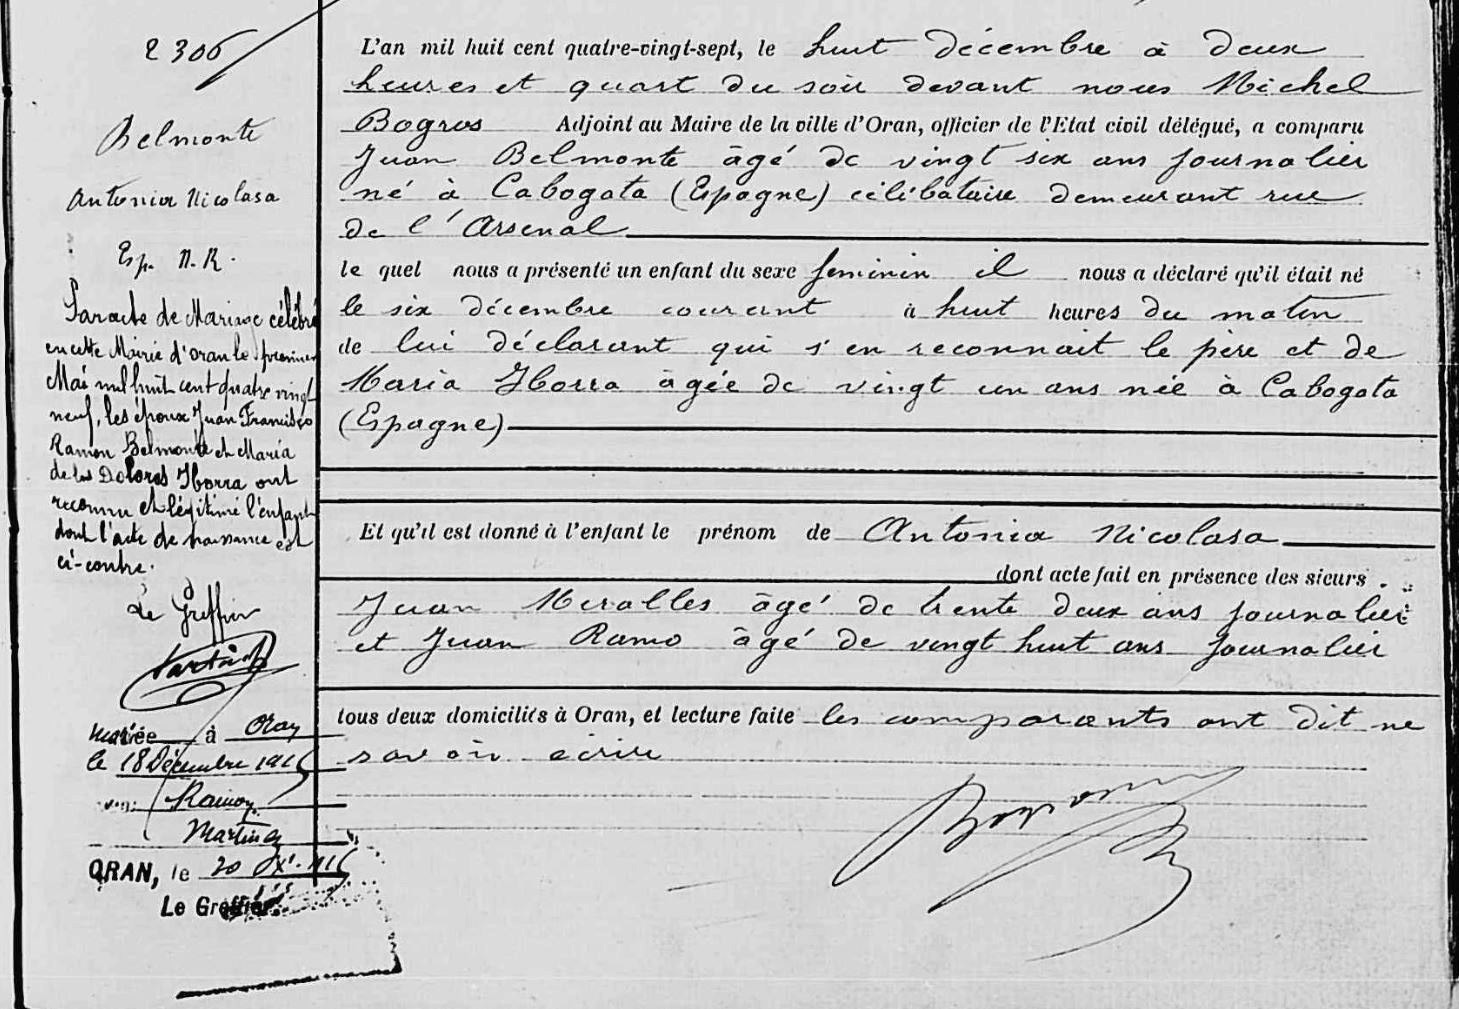 2306
Belmonte
Antonia Nicolasa
Esp. N.R.
Par acte de Mariage célébré
en cette Mairie d'Oran le premier
Mai mil huit cent quatre vingt
neuf, les époux Juan Francisco
Ramon Belmonte et Maria
de los Dolores Iborra ont
reconnu et légitimé l'enfant
dont l'acte de naissance est
ci-contre.
Le Greffier
Mariée à Oran
le 18 Décembre 1916
Ramon
Martinez
ORAN, le 20
Le Greffier
L'an mil huit cent quatre-vingt-sept, le huit décembre à deux
heures et quart du soir devant nous Michel
Bogros Adjoint au Maire de la ville d'Oran, officier de l'Etat civil délégué, a comparu
Juan Belmonte âgé de vingt six ans journalier
né à Cabogata (Espagne) célibataire demeurant rue
de l'Arsenal
le quel nous a présenté un enfant du sexe feminin il nous a déclaré qu'il était né
le six décembre courant à huit heures du matin
de lui déclarant qui s'en reconnait le père et de
Maria Iborra âgée de vingt un ans née à Cabogata
(Espagne)
Et qu'il est donné à l'enfant le prénom de Antonia Nicolasa
dont acte fait en présence des sieurs
Juan Miralles âgé de trente deux ans journalier
et Juan Ramo âgé de vingt huit ans journalier
tous deux domiciliés à Oran, et lecture faite les comparants ont dit ne
savoir écrire